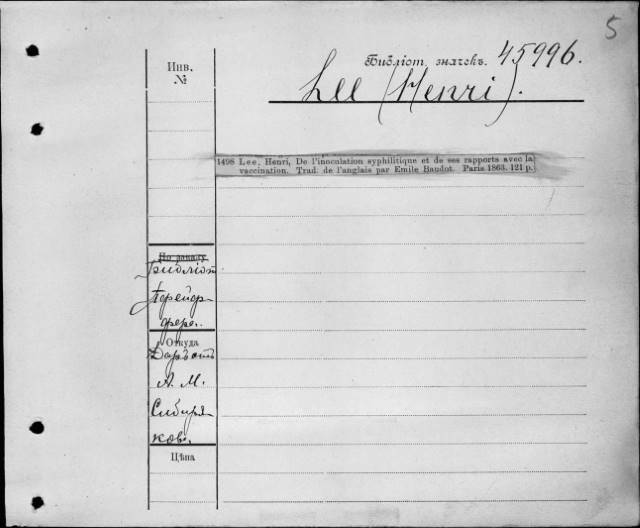 5
Библіот. значекъ. 45996.
Lee (Henri).
Инв.
№
1498 Lee, Henri, De l'inoculation syphilitique et de ses rapports avec la
vaccination. Trad. de l'anglais par Emile Baudot. Paris 1863. 121 p.
Библіот
Откуда
Даръ отъ
А. М.
Сибиря-
кова.
Цѣна